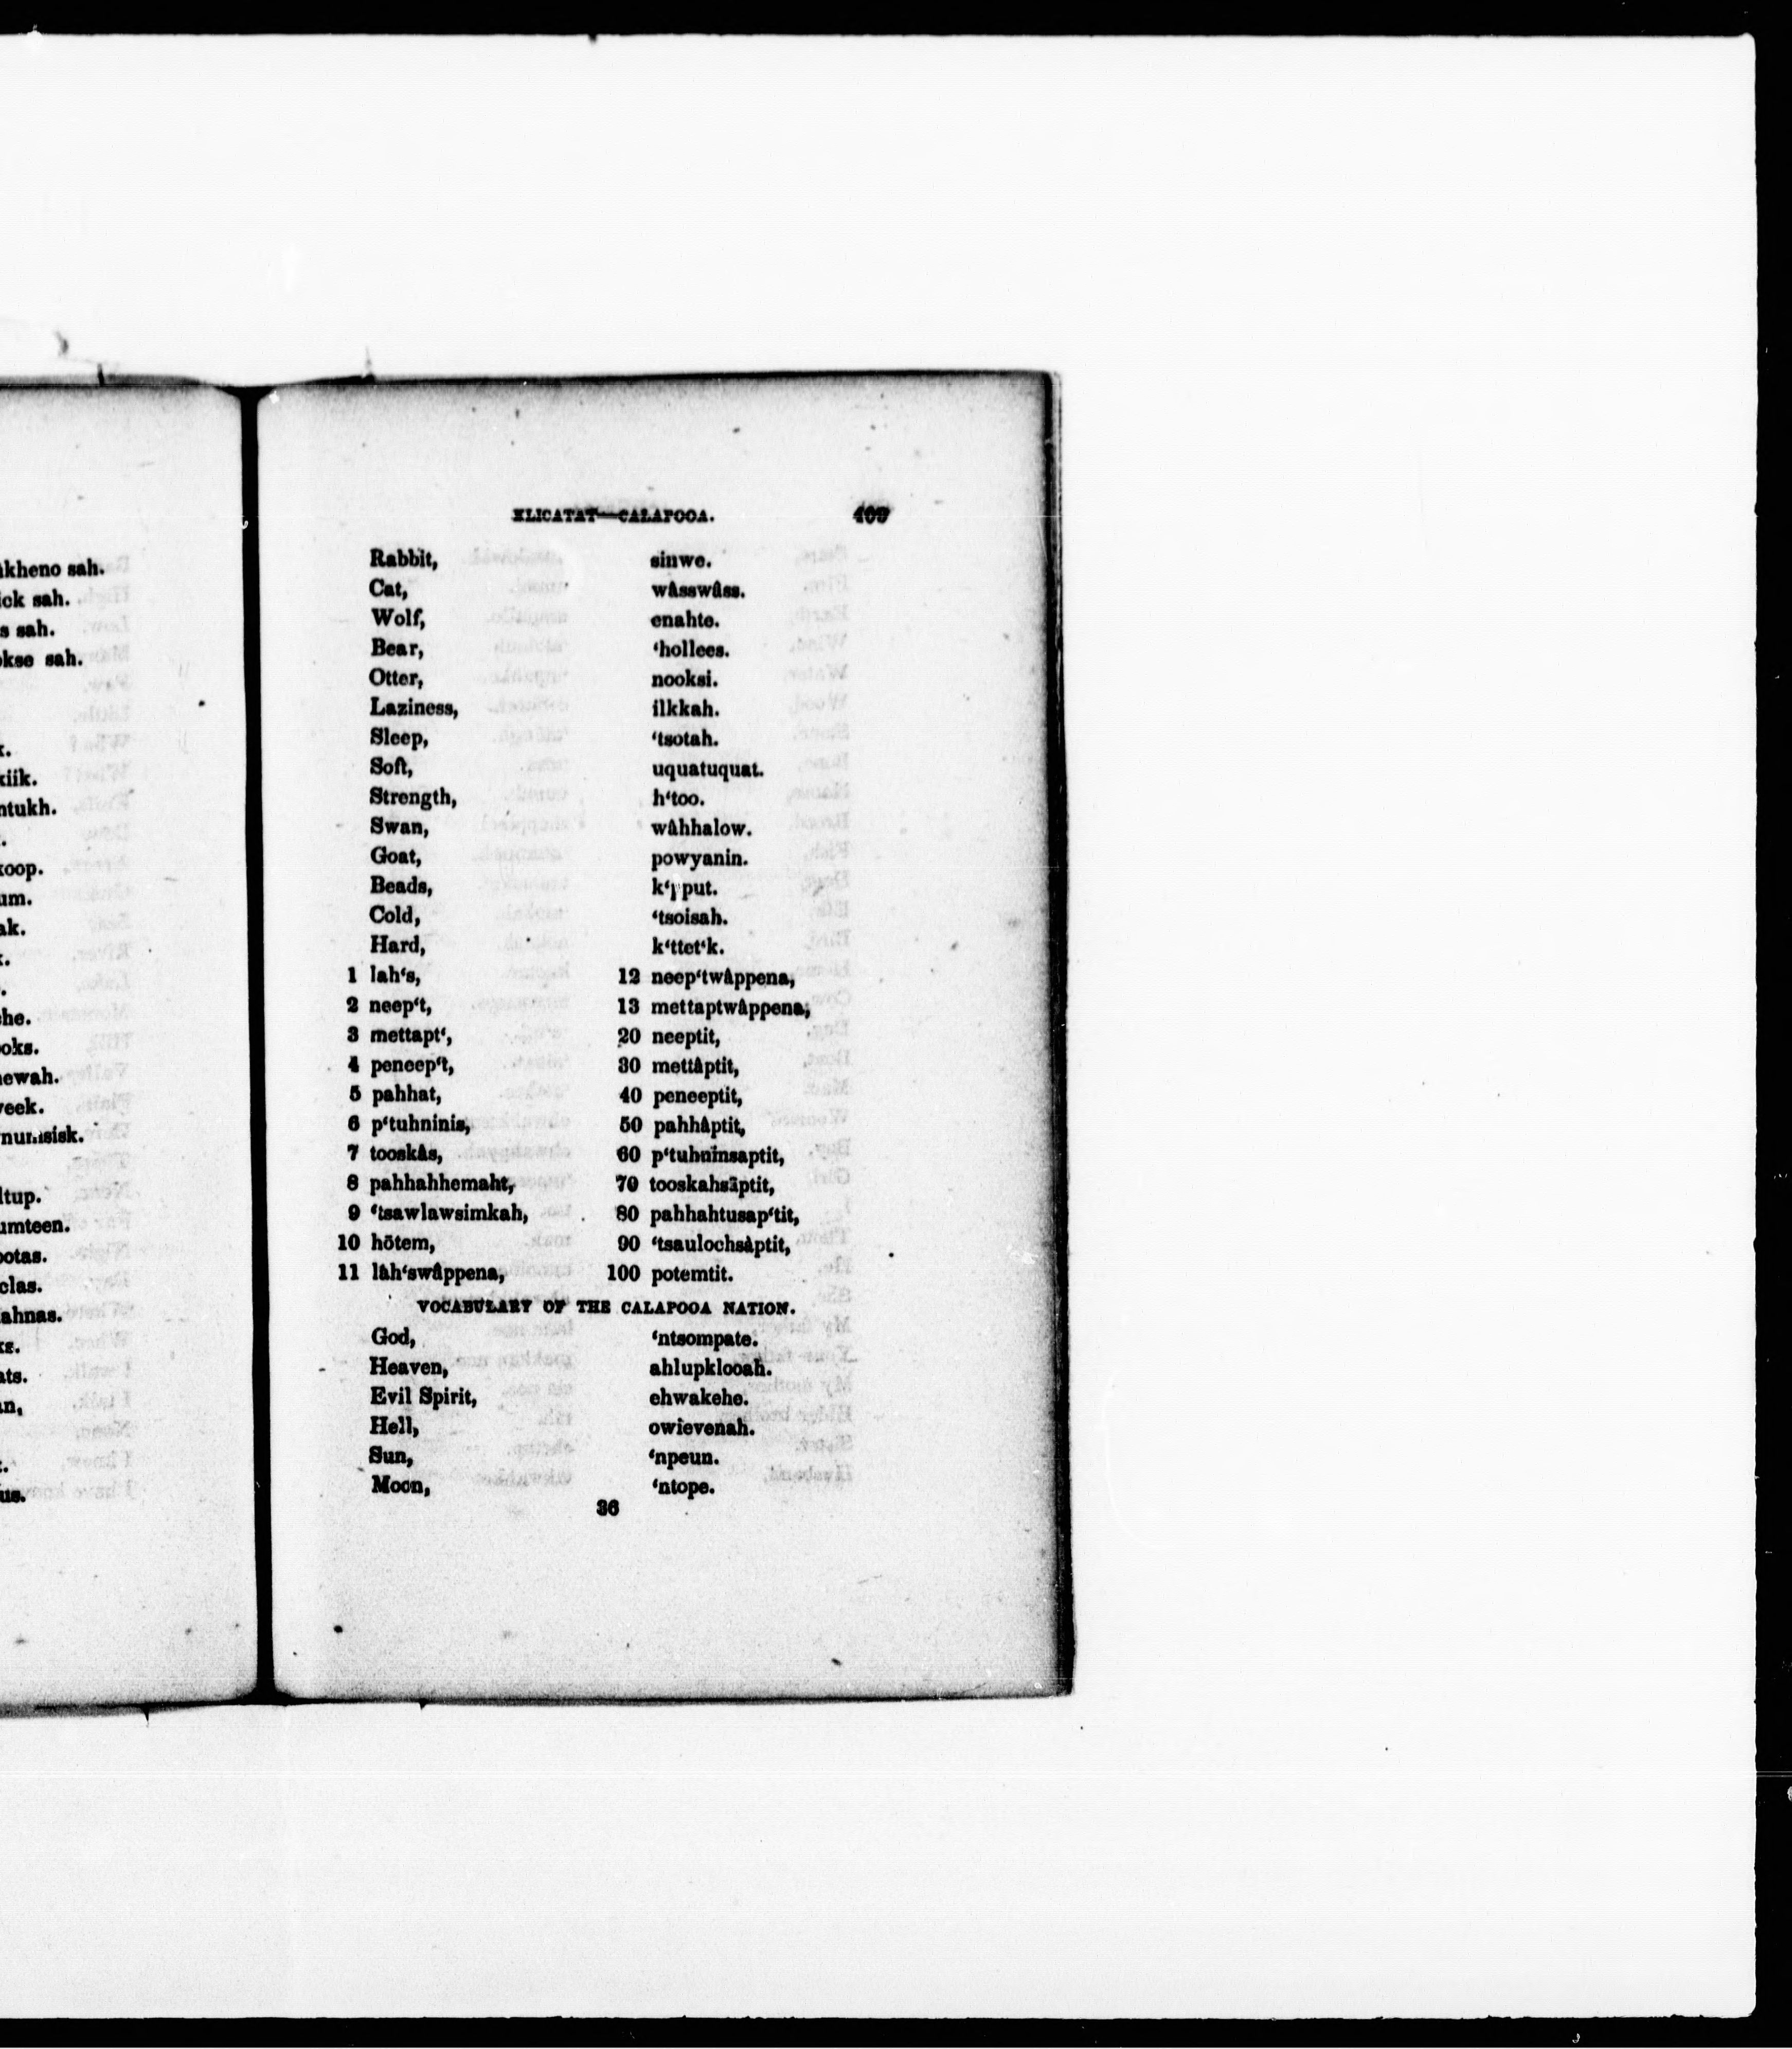 kheno sah.
ick sah.
s sah.
okse sah.
kiik.
ntukh.
koop.
um.
ak.
che.
oks.
newah.
veek.
ltup.
umteen.
ootas.
clas.
ahnas.
ats.
an,
us.
KLICATAT—CALAPOOA. 409
Rabbit, sinwe.
Cat, wâsswâss.
Wolf, enahte.
Bear, ‘hollees.
Otter, nooksi.
Laziness, ilkkah.
Sleep, ‘tsotah.
Soft, uquatuquat.
Strength, h‘too.
Swan, wâhhalow.
Goat, powyanin.
Beads,
Cold, ‘tsoisah.
Hard, k‘ttet‘k.
1 lah‘s, 12 neep‘twâppena,
2 neep‘t, 13 mettaptwâppena,
3 mettapt‘, 20 neeptit,
4 peneep‘t, 30 mettâptit,
5 pahhat, 40 peneeptit,
6 p‘tuhninis, 50 pahhâptit,
7 tooskâs, 60 p‘tuhninsaptit,
8 pahhahhemaht, 70 tooskahsāptit,
9 ‘tsawlawsimkah, 80 pahhahtusap‘tit,
10 hōtem, 90 ‘tsaulochsâptit,
11 lâh‘swâppena, 100 potemtit.
VOCABULARY OF THE CALAPOOA NATION.
God, ‘ntsompate.
Heaven, ahlupklooah.
Evil Spirit, ehwakehe.
Hell, owievenah.
Sun, ‘npeun.
Moon, ‘ntope.
36